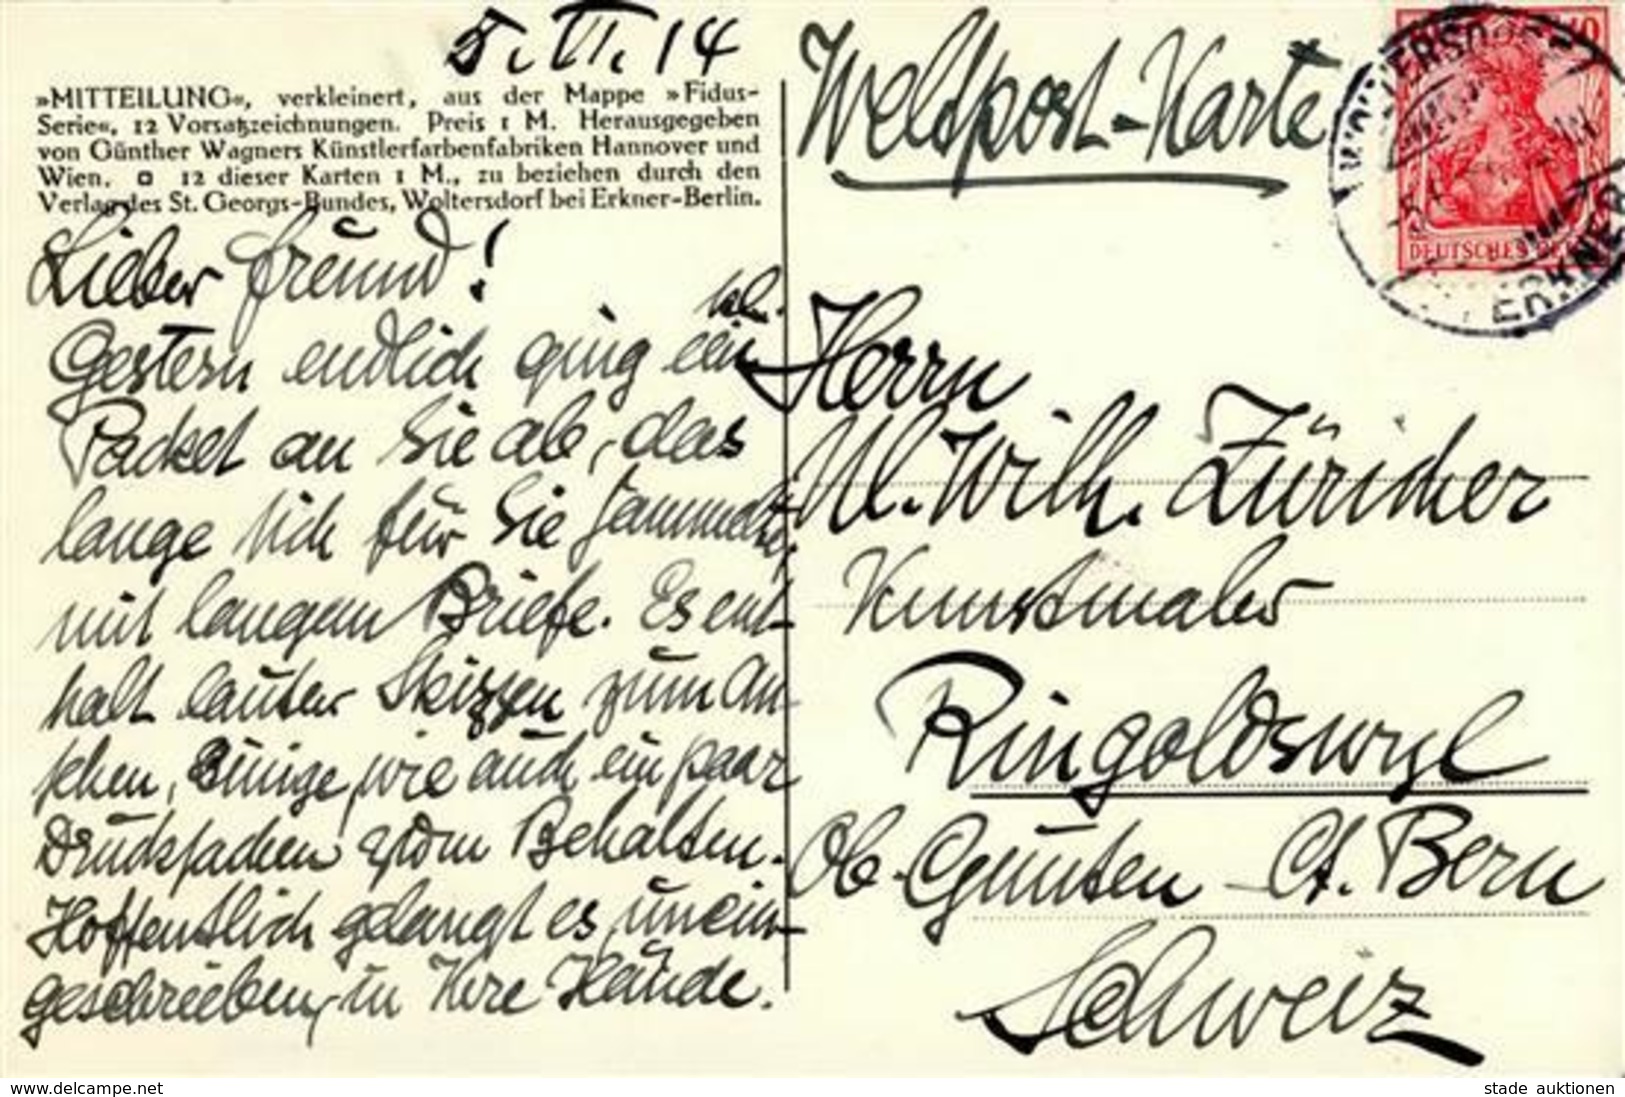 5. VI. 14
»MITTEILUNG«, verkleinert, aus der Mappe »Fidus-
Serie«, 12 Vorsatzzeichnungen. Preis 1 M. Herausgegeben
von Günther Wagners Künstlerfarbenfabriken Hannover und
Wien. ◻ 12 dieser Karten 1 M., zu beziehen durch den
Verlag des St. Georgs-Bundes, Woltersdorf bei Erkner-Berlin.
Lieber Freund!
Gestern endlich ging ein kl.
Packet an Sie ab, das
lange sich für Sie sammelte,
mit langem Briefe. Es ent-
halt lauter Skizzen zum An-
sehen, Einige, wie auch ein paar
Drucksachen zum Behalten.
Hoffentlich gelangt es, unein-
geschrieben, in Ihre Hände.
Weltpost-Karte
Herrn
U. Wilh. Züricher
Kunstmaler
Ringoldswyl
Ob. Gunten Ct. Bern
Schweiz
10
DEUTSCHES REICH
WOLTERSDORF
ERKNER
www.delcampe.net
stade auktionen